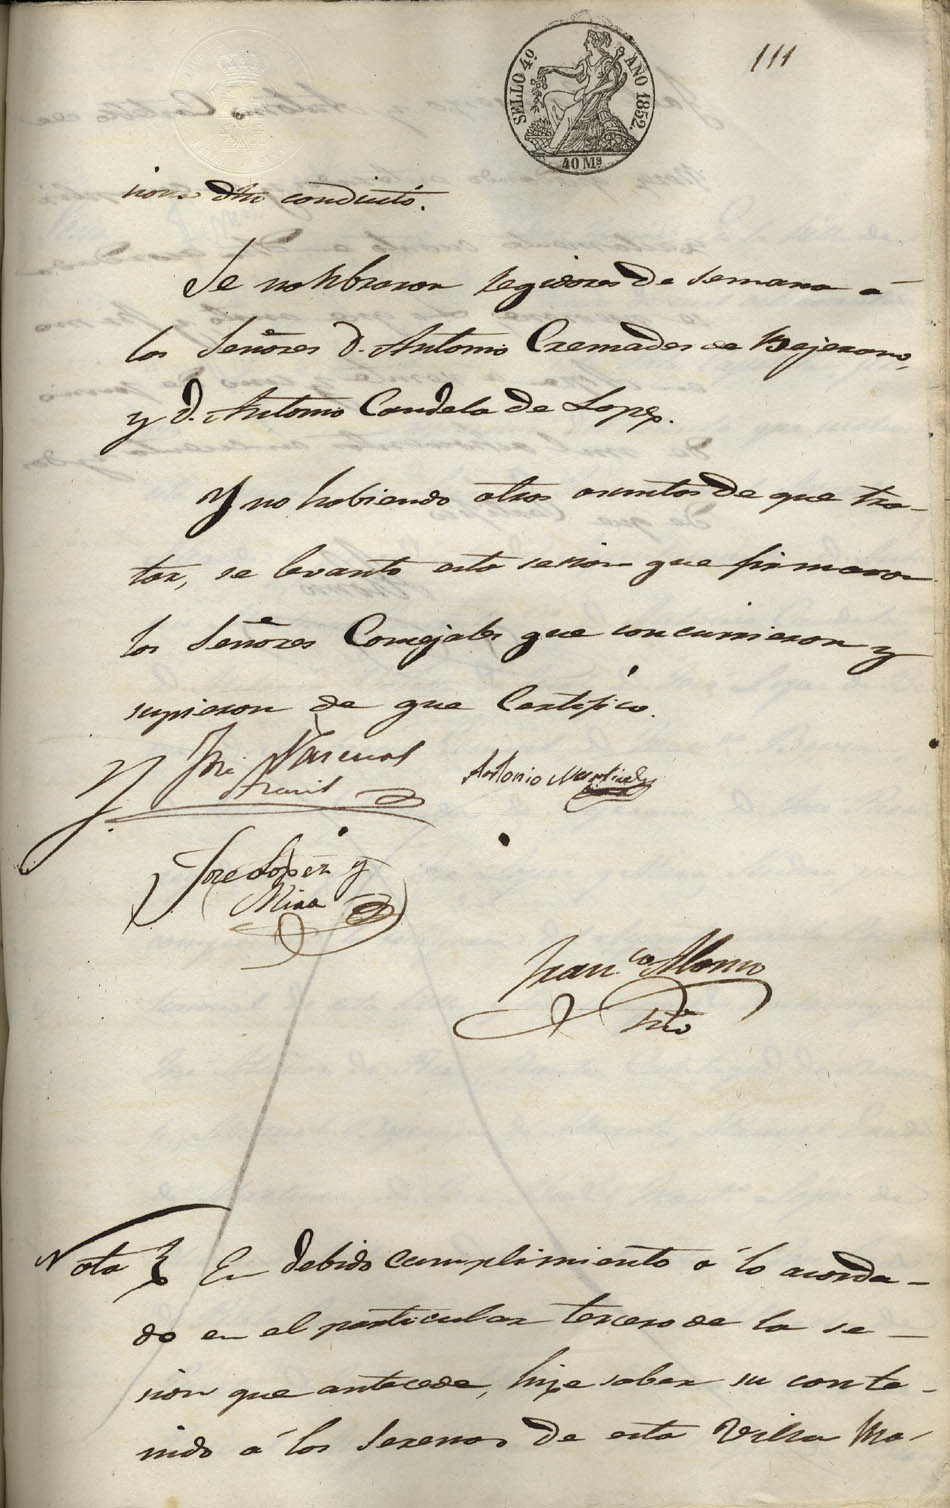 111
SELLO 4º AÑO 1852.
40 Ms
nore dho conducto.
Se nombraron regidores de semana á
los Señores D. Antonio Cremades de Bejerano,
y D. Antonio Candela de Lopez.
Y no habiendo otros asuntos de que tra-
tar, se levantó esta sesion que firmaron
los Señores Concejales que concurrieron y
supieron de que Certifico.
José Pascual
Antonio
José Lopez y
Mira
Fran.co Alonso
Srio
Nota En debido cumplimiento á lo acorda-
do en el particular tercero de la se-
sion que antecede, hize saber su conte-
nido á los Serenos de esta Villa Ma-